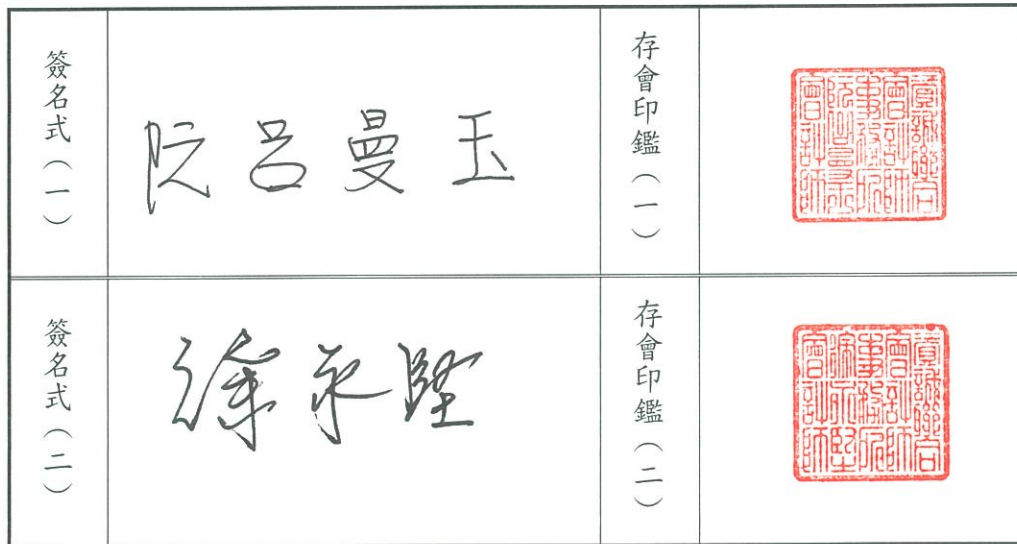 簽名式（一）
阮呂曼玉
存會印鑑（一）
資誠聯合
會計師
事務所
阮呂曼玉
會計師
簽名式（二）
徐永堅
存會印鑑（二）
資誠聯合
會計師
事務所
徐永堅
會計師